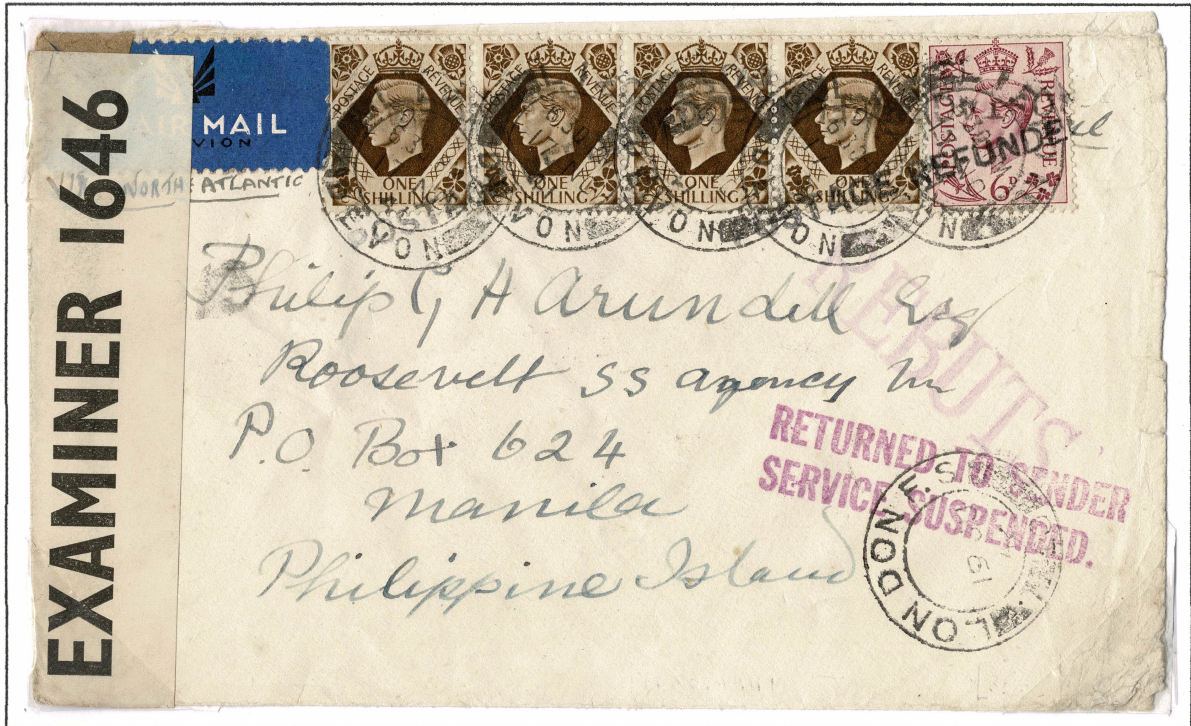 EXAMINER 1646
AIR MAIL
AVION
NORTH ATLANTIC
POSTAGE REVENUE
ONE SHILLING
POSTAGE REVENUE
ONE SHILLING
POSTAGE REVENUE
ONE SHILLING
POSTAGE REVENUE
ONE SHILLING
POSTAGE REVENUE
6D
Philip G H Arundell Esq
Roosevelt SS Agency Inc
P.O. Box 624
Manila
Philippine Island
REBUTS
RETURNED TO SENDER
SERVICE SUSPENDED.
LONDON F.S.